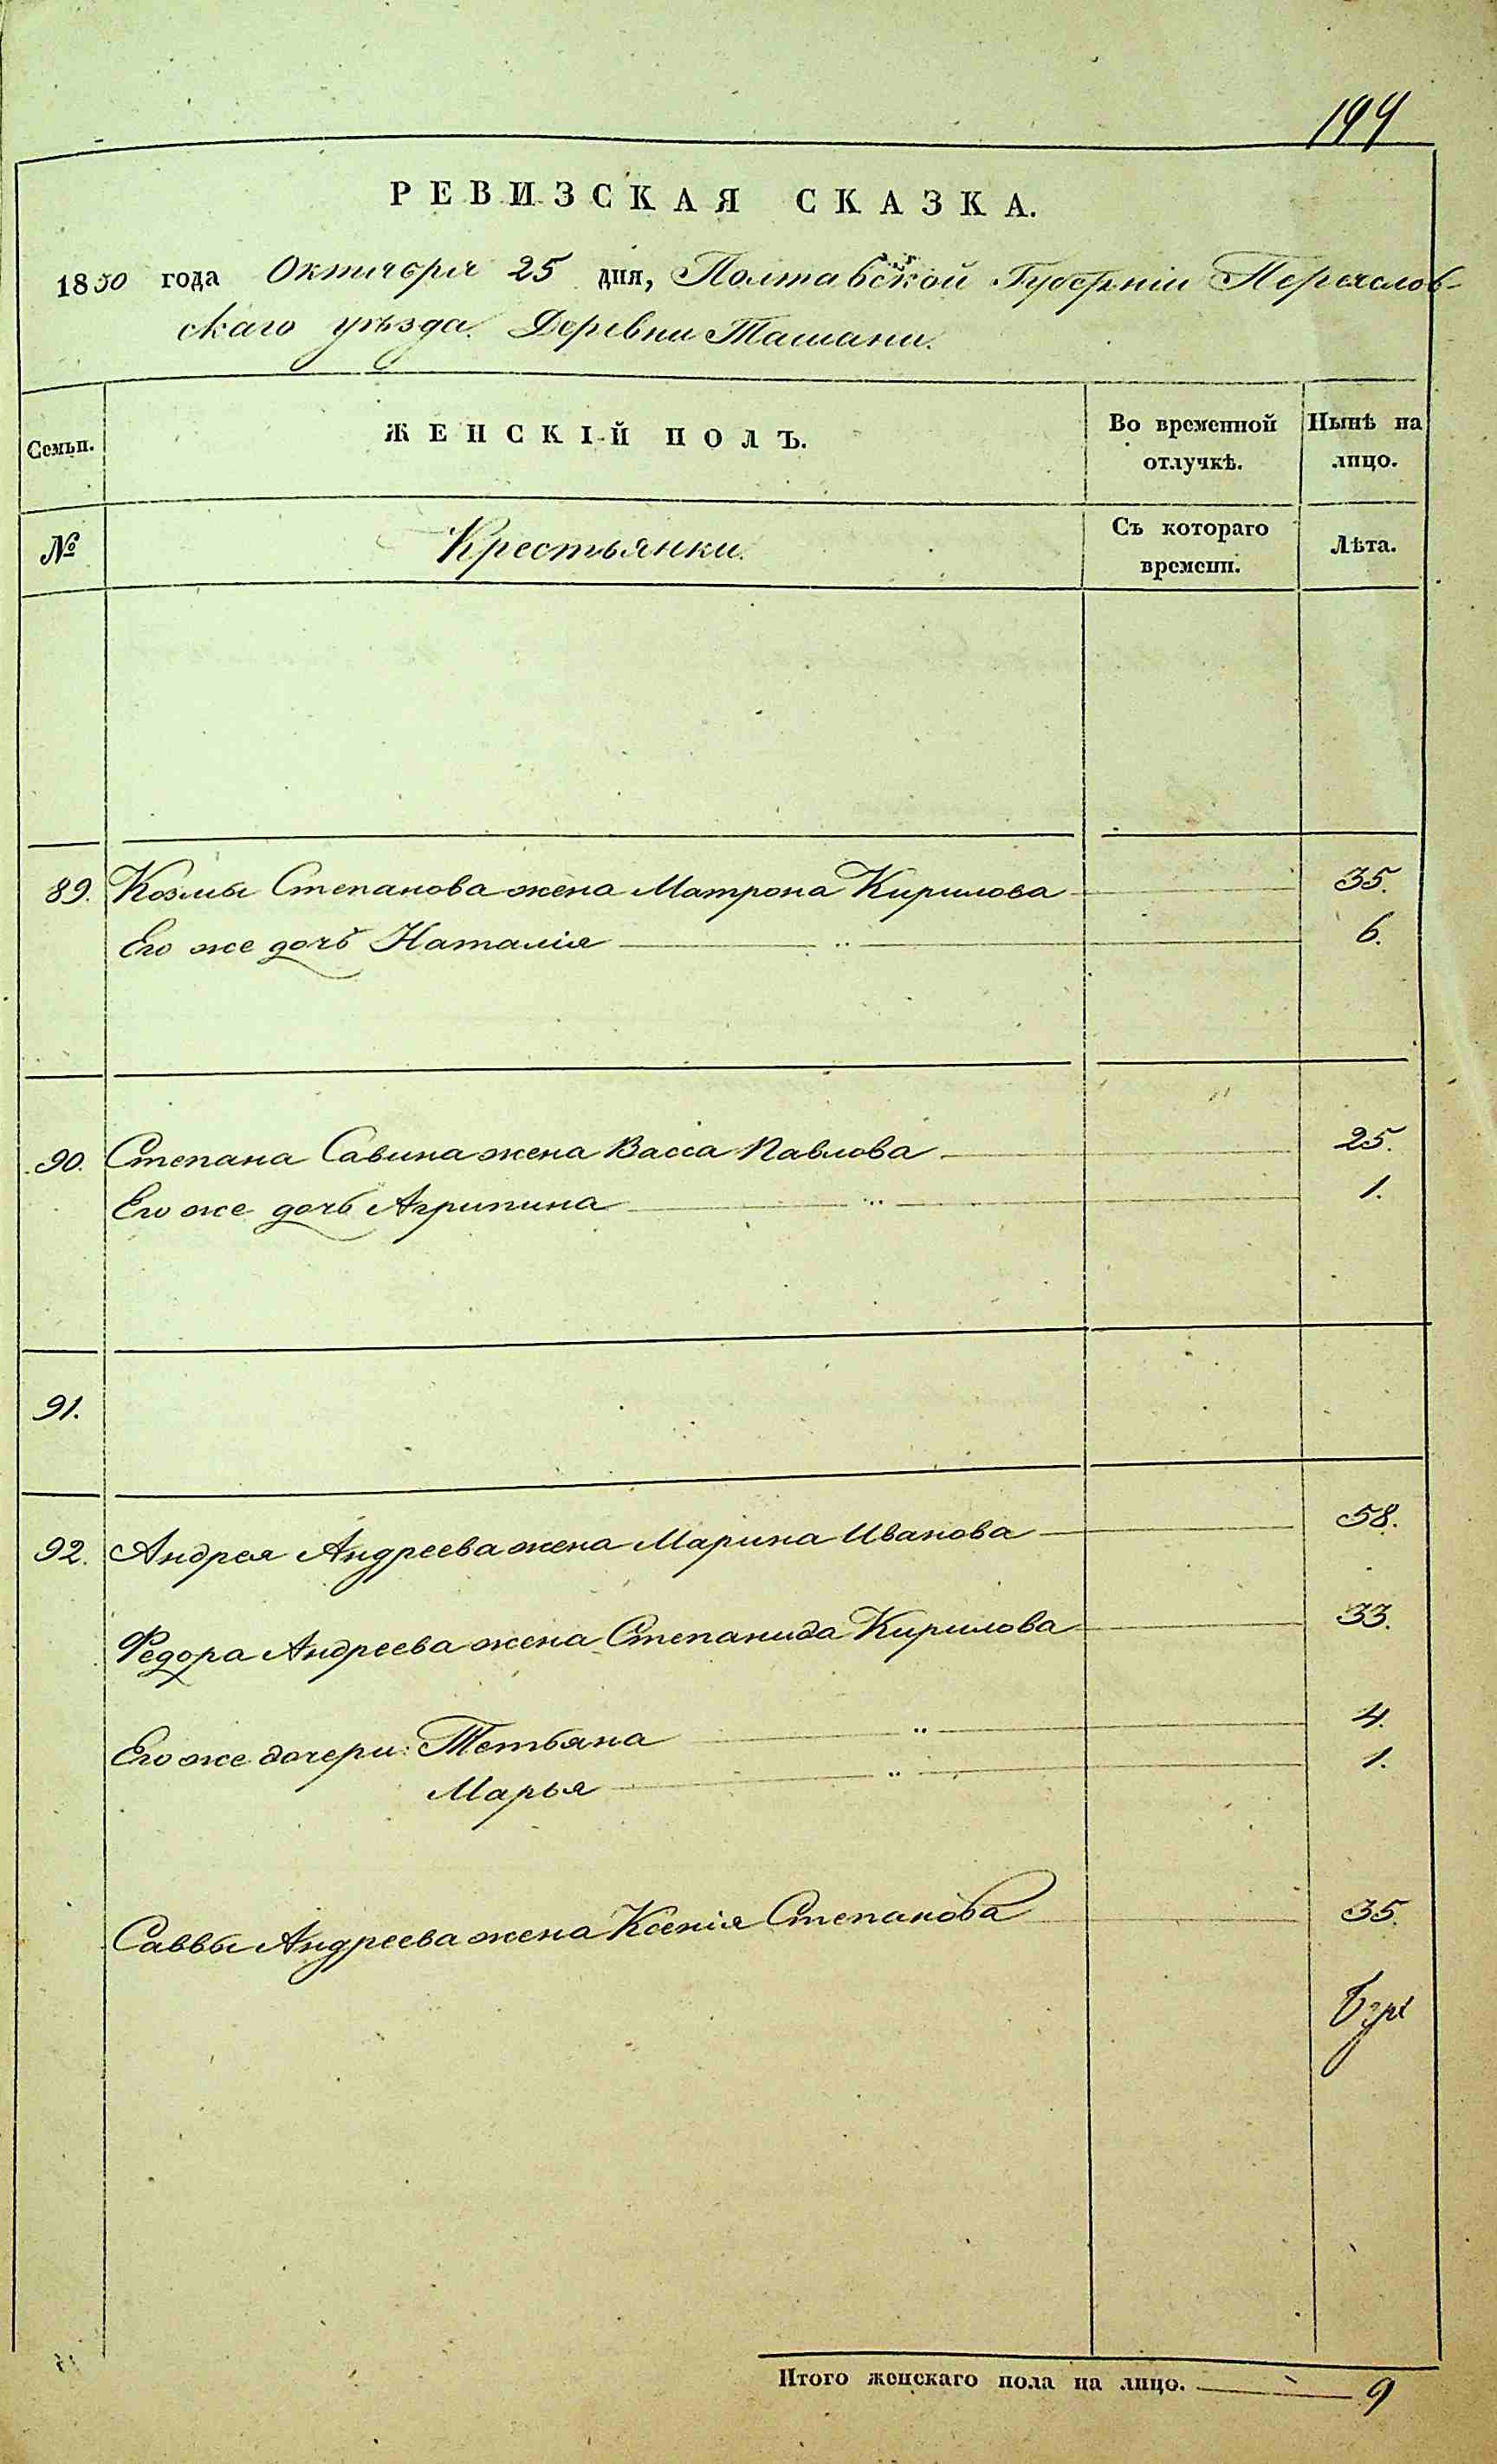 199
РЕВИЗСКАЯ СКАЗКА.
1850 года Октября 25 дня, Полтавской Губерніи Переяслов-
скаго уѣзда. Деревни Ташани.
Семьи.
ЖЕНСКІЙ ПОЛЪ.
Во временной отлучкѣ.
Нынѣ на лицо.
№
Крестьянки.
Съ котораго времени.
Лѣта.
89. Козмы Степанова жена Матрона Кирилова 35.
Его же дочь Наталія 6.
90. Степана Савина жена Васса Павлова 25.
Его же дочь Агрипина 1.
91.
92. Андрея Андреева жена Марина Иванова 58.
Федора Андреева жена Степанида Кирилова 33.
Его же дочери: Тетьяна 4.
Марья 1.
Саввы Андреева жена Ксенія Степанова 35.
Итого женскаго пола на лицо. 9